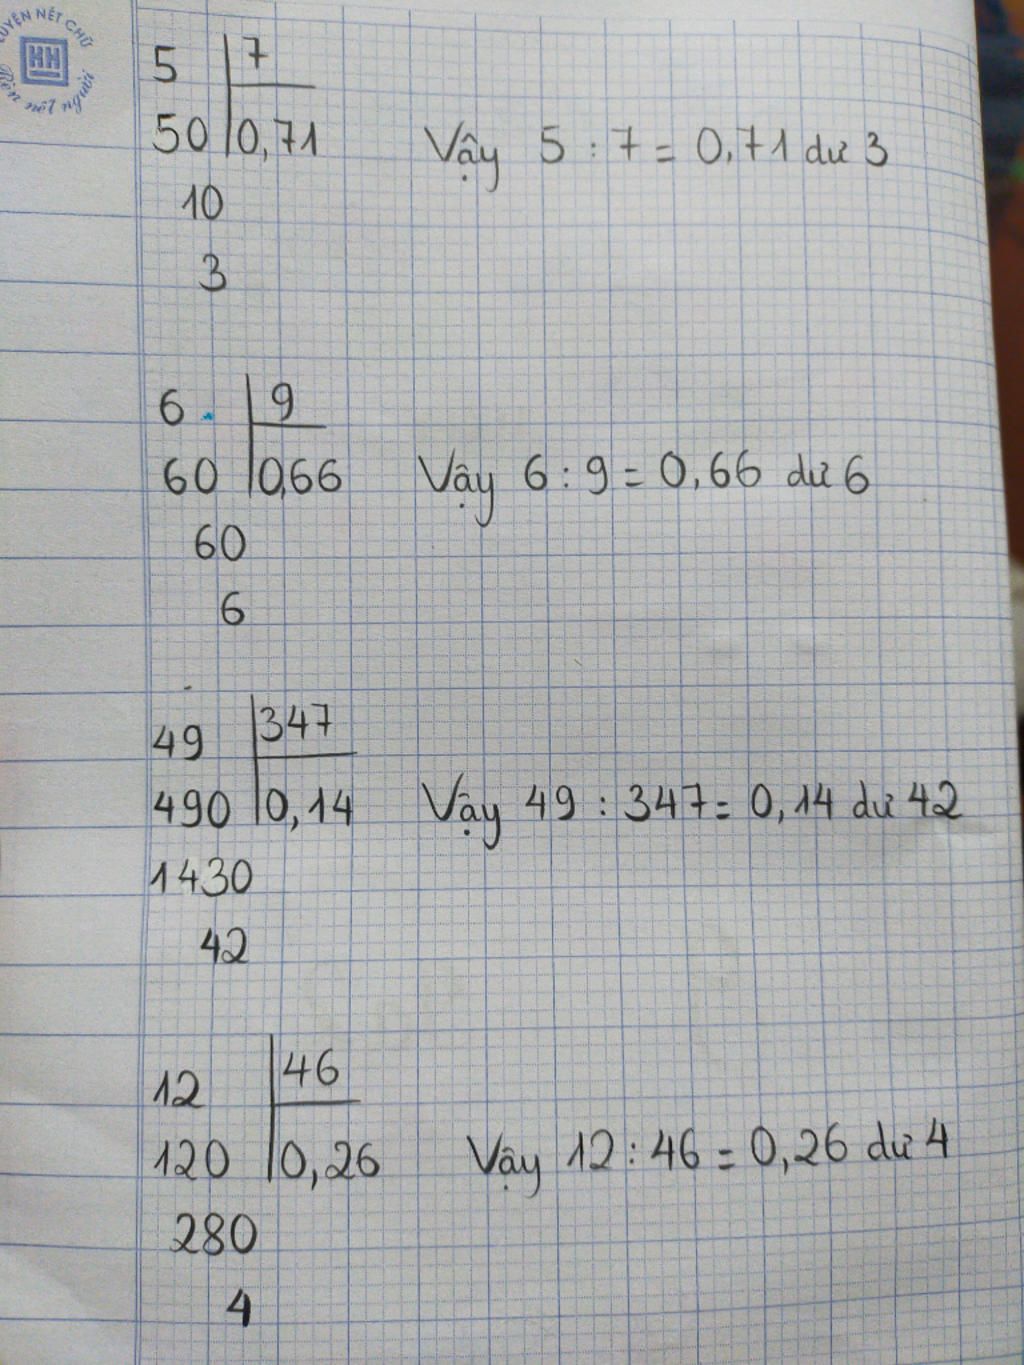 LUYỆN NÉT CHỮ
HH
Rèn nết người
5 7
50 0,71 Vậy 5 : 7 = 0,71 dư 3
10
3
6 9
60 0,66 Vậy 6 : 9 = 0,66 dư 6
60
6
49 347
490 0,14 Vậy 49 : 347 = 0,14 dư 42
1430
42
12 46
120 0,26 Vậy 12 : 46 = 0,26 dư 4
280
4